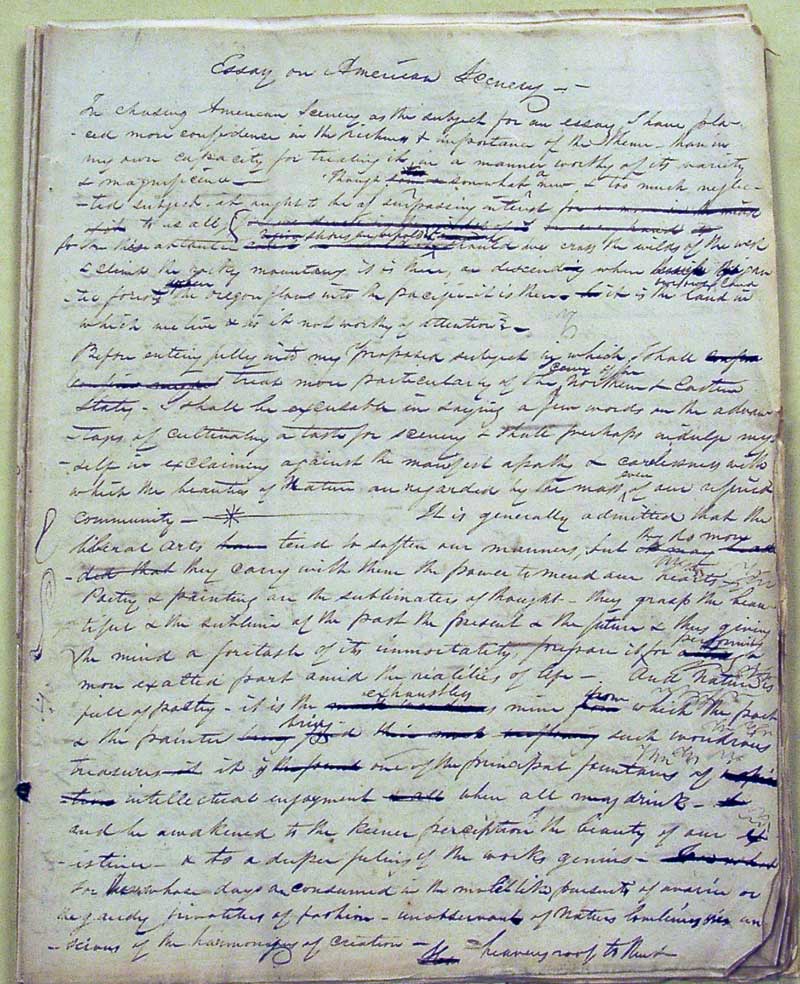 Essay on American Scenery —
In chosing American Scenery as the subject for an essay I have pla-
-ced more confidence in the richness & importance of the Theme than in
my own capacity for treating it in a manner worthy of its variety
& magnificence — Though a somewhat new & too much neglec-
-ted subject, it ought to be of surpassing interest
to us all
for the should we cross the wilds of the west
& climb the rocky mountains it is there, or descending where
the forest the Oregon flows into the pacific it is there it is the land in
which we live & is it not worthy of attention? —
Before entering fully into my proposed subject in which I shall
treat more particularly of the Scenery of the Northern & Eastern
States — I shall be excusable in saying a few words on the advan
-tages of cultivating a taste for scenery & shall perhaps indulge my
-self in exclaiming against the manifest apathy & carelessness with
which the beauties of Nature are regarded by the mass even of our refined
community — It is generally admitted that the
liberal arts tend to soften our manners, but they do more
they carry with them the power to mend our hearts
Poetry & painting are the sublimaters of thought — they grasp the beau-
-tiful & the sublime of the past the present & the future & thus giving
the mind a foretaste of its immortality, prepare it for performing a
more exalted part amid the realities of life — And Nature is
full of poetry — it is the exhaustless mine from which the poet
& the painter bring such wondrous
treasures it is one of the principal fountains of
intellectual enjoyment where all may drink —
and be awakened to the keener perception of the beauty of our ex
-istence — & to a deeper feeling of the works genius —
For those whose days are consumed in the pursuits of avarice or
the gaudy frivolities of fashion — unobservant of nature's loveliness are un-
-scious of the harmony of creation — heavens roof to them